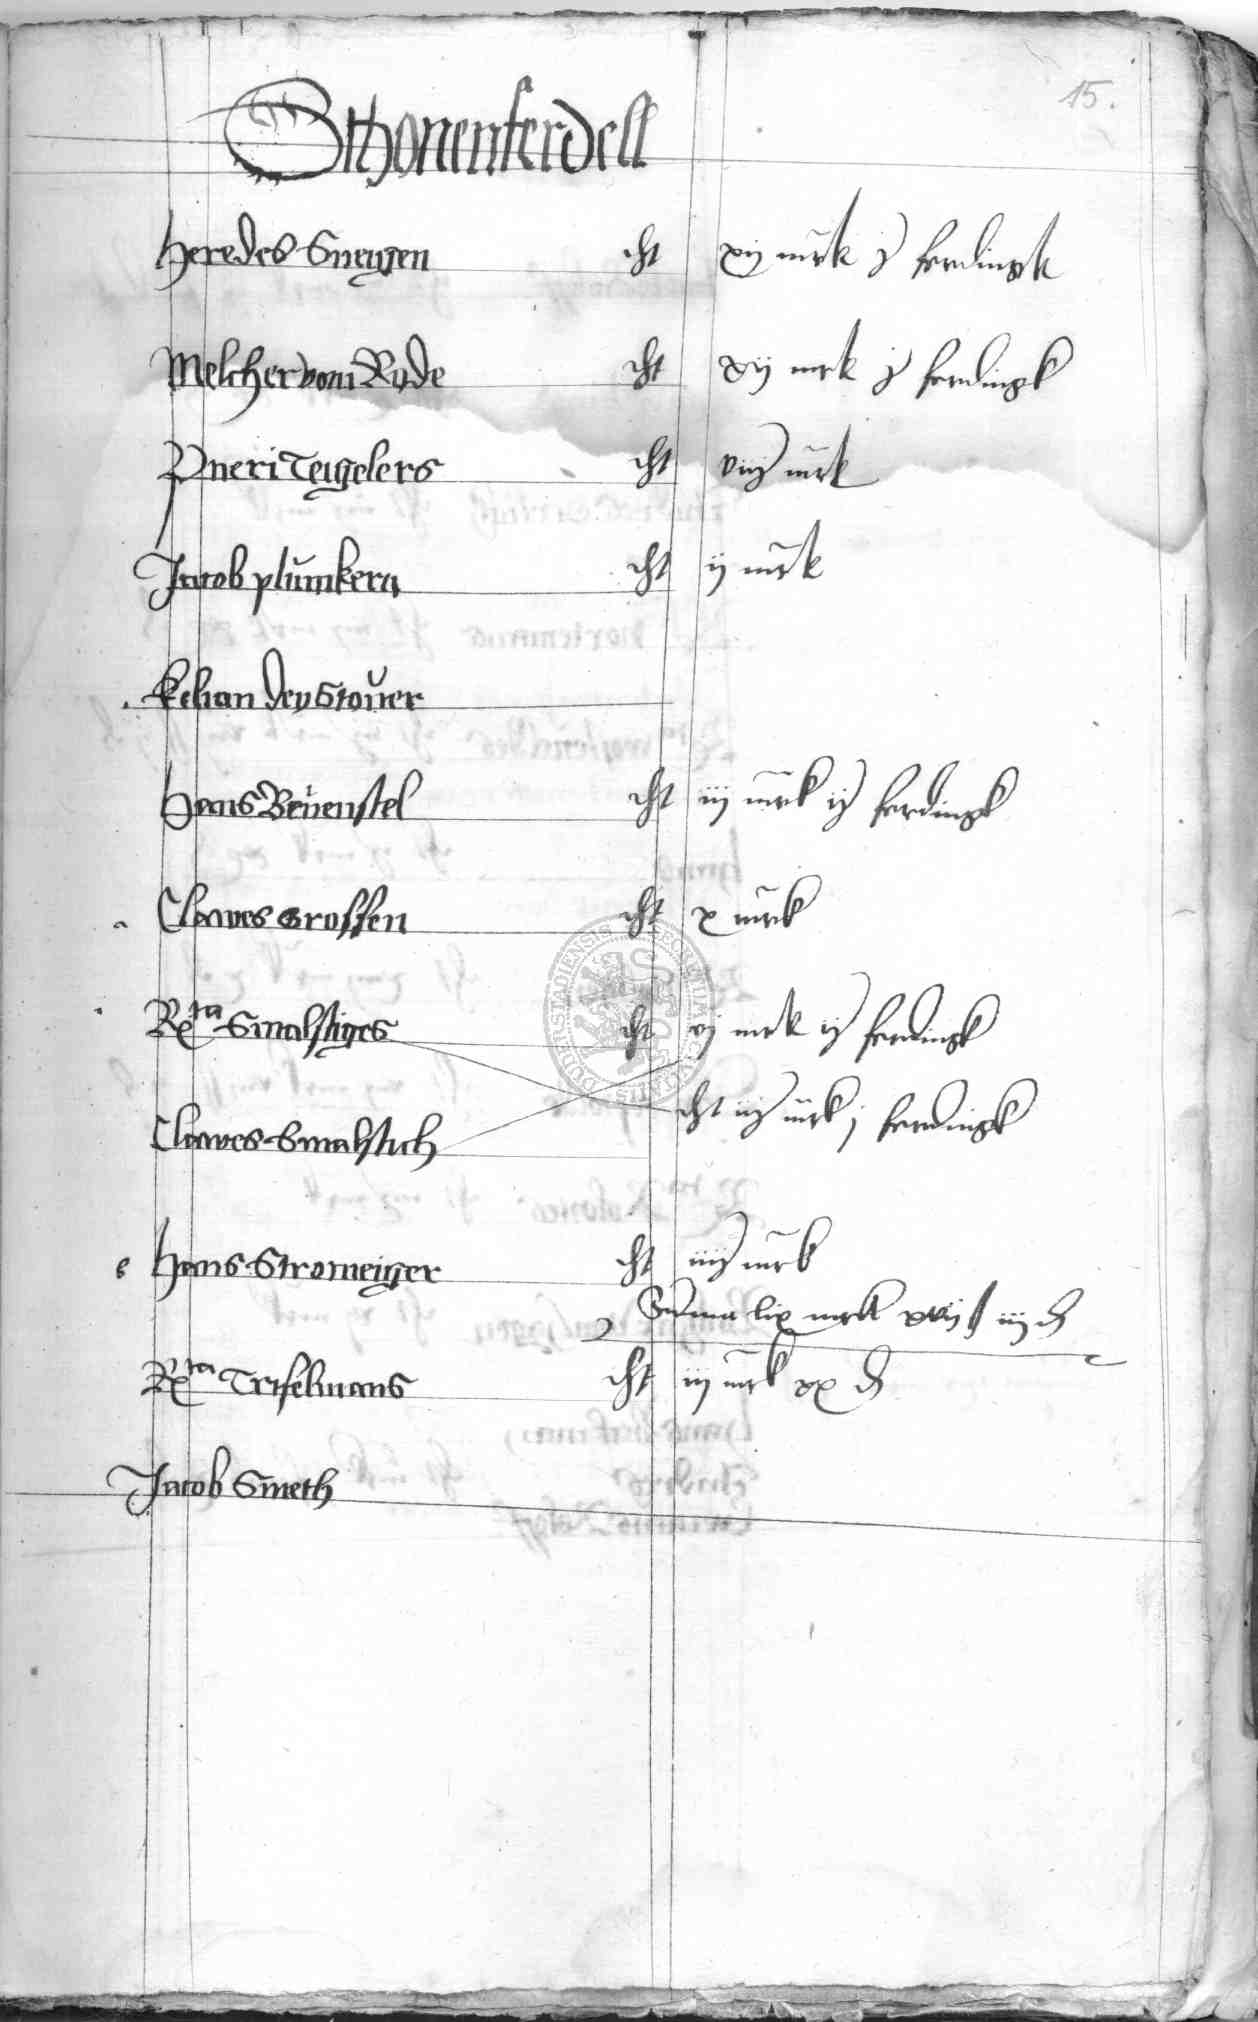 15.
Sthonenferdell
Heredes Sneygen dt xij mrk j ferdingk
Melcher vom Rode dt xij mrk j ferdingk
Pueri Teygelers dt viij mrk
Jacob plumkern dt ij mrk
Kelian dey Stover
Hans Bevenstel dt iij mrk ij ferdingk
Clawes Grossen dt x mrk
Rcta Smalstiges dt vj mrk ij ferdingk
Clawes Smalstich dt iij mrk j ferdingk
Hans Stromeiger dt iiij mrk
Summa lix mrk iij d
Rcta Tryselmans dt iij mrk xx d
Jacob Smeth